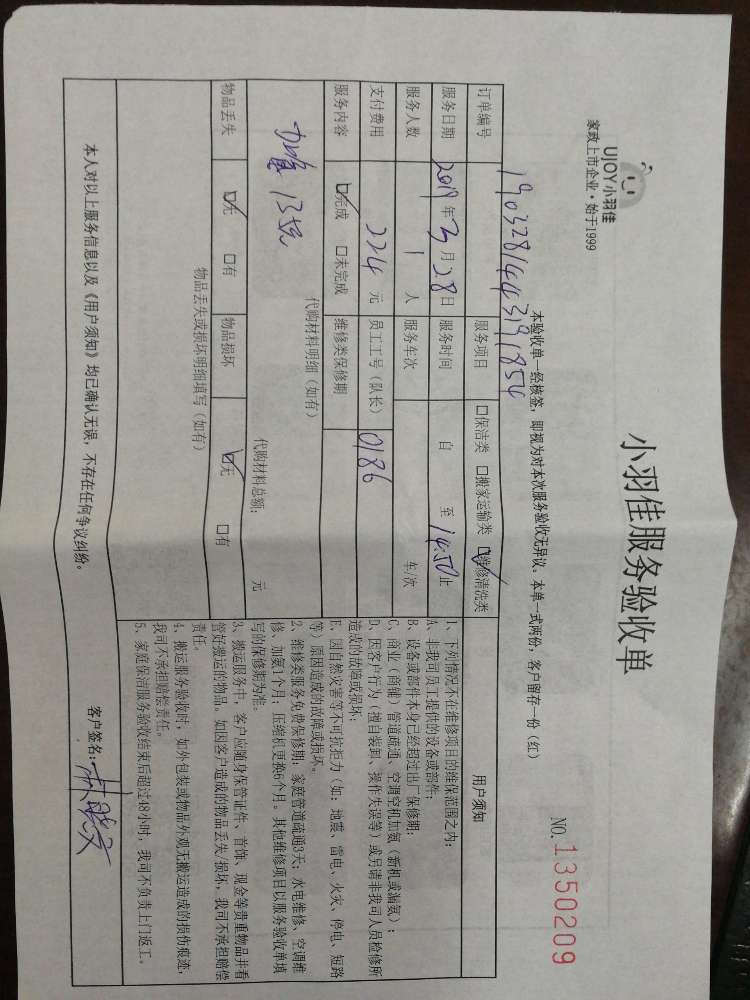 UJOY小羽佳
家政上市企业·始于1999
小羽佳服务验收单
NO. 1350209
本验收单一经核签，即视为对本次服务验收无异议。本单一式两份，客户留存一份（红）
订单编号 1903281443191854 服务项目 口保洁类 口搬家运输类 ☑维修清洗类
服务日期 2019年3月28日 服务时间 自 至 14:50止
服务人数 1人 服务车次 车/次
支付费用 224元 员工工号（队长） 0186
服务内容 ☑完成 口未完成 维修类保修期
代购材料明细（如有）
13
代购材料总额： 元
物品丢失 ☑无 口有 物品损坏 ☑无 口有
物品丢失或损坏明细填写（如有）
本人对以上服务信息以及《用户须知》均已确认无误，不存在任何争议纠纷。
用户须知
1、下列情况不在维修项目的维保范围之内：
A、非我司员工提供的设备或部件；
B、设备或部件本身已经超过出厂保修期；
C、商业（商铺）管道疏通、空调空机加氨（新机或漏氨）；
D、因客户行为（擅自装卸、操作失误等）或另请非我司人员检修所
造成的故障或损坏；
E、因自然灾害等不可抗拒力（如：地震、雷电、火灾、停电、短路
等）原因造成的故障或损坏。
2、维修类服务免费保修期：家庭管道疏通3天；水电维修、空调维
修、加氨1个月；压缩机更换6个月。其他维修项目以服务验收单填
写的保修期为准。
3、搬运服务中，客户应随身保管证件、首饰、现金等贵重物品并看
管好搬运的物品。如因客户造成的物品丢失/损坏，我司不承担赔偿
责任。
4、搬运服务验收时，如外包装或物品外观无搬运造成的损伤痕迹，
我司不承担赔偿责任。
5、家庭保洁服务验收结束后超过48小时，我司不负责上门返工。
客户签名：